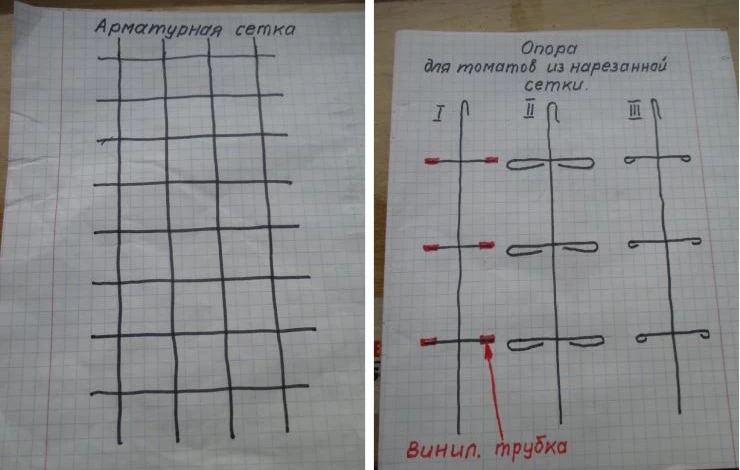 Арматурная сетка
Опора
для томатов из нарезанной
сетки.
I II III
Винил. трубка